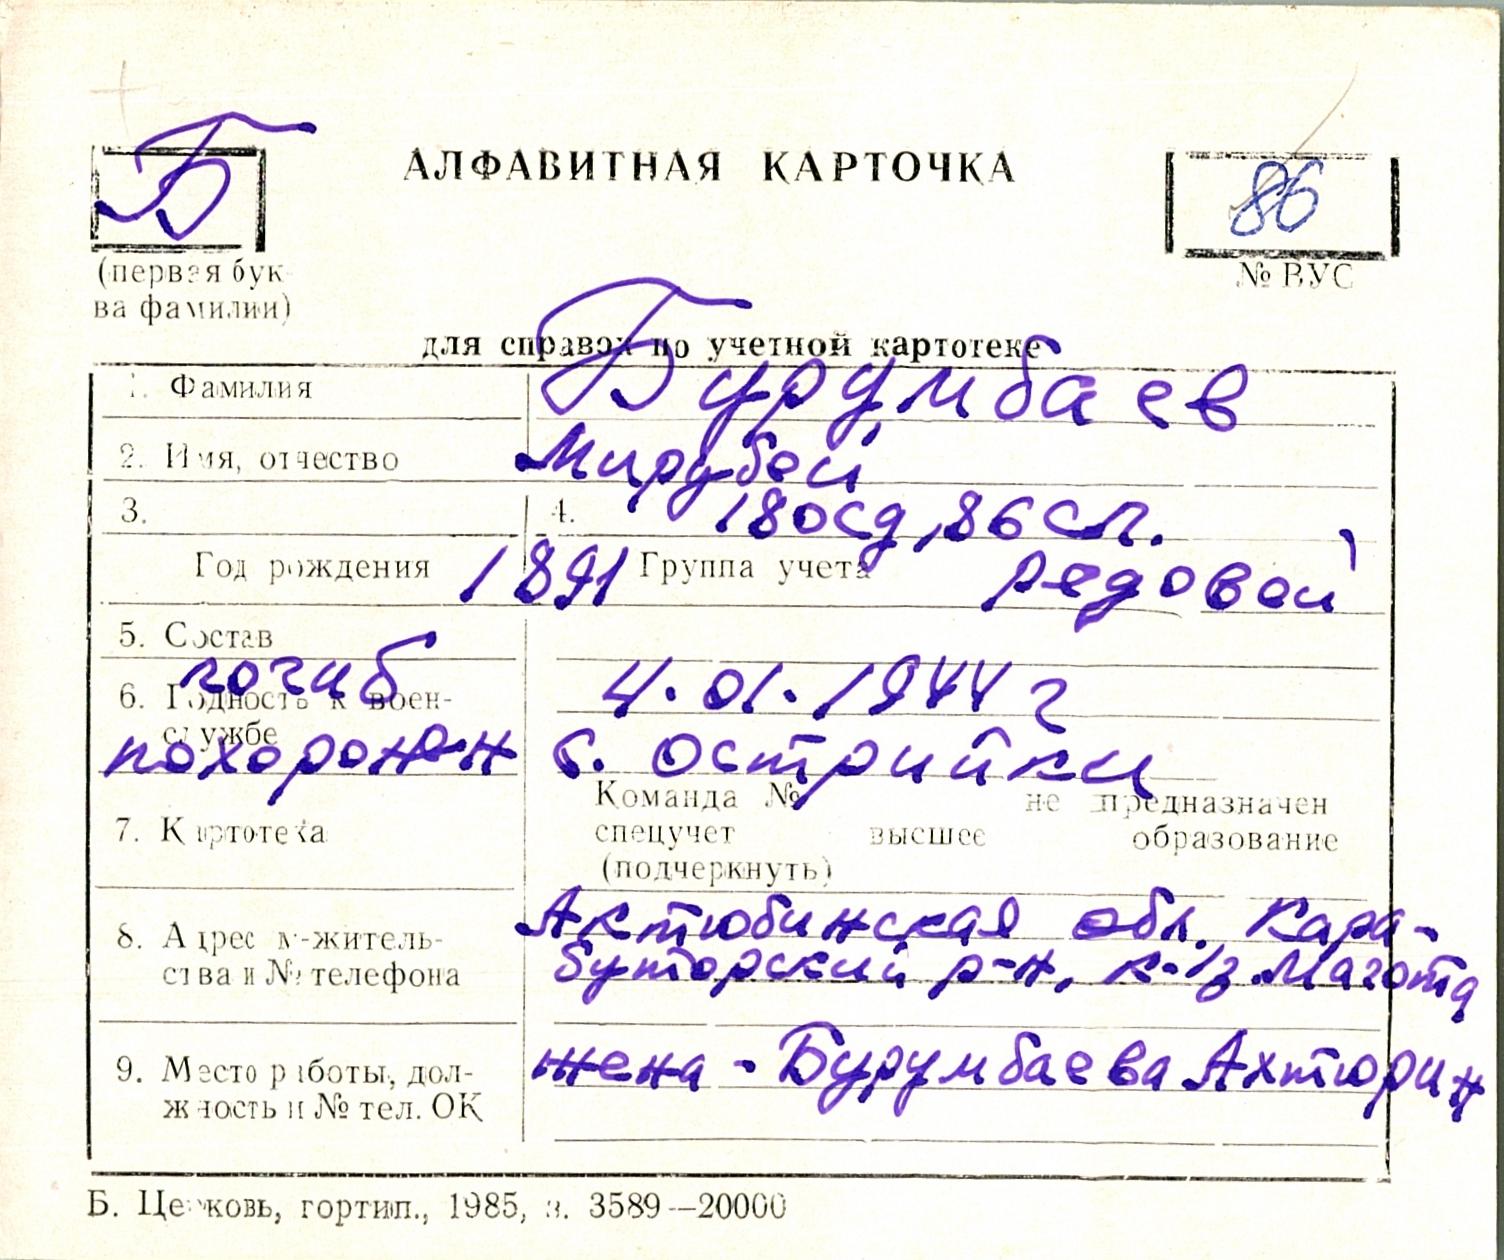 Б
АЛФАВИТНАЯ КАРТОЧКА
86
(первая бук
ва фамилии)
№ ВУС
для справок по учетной картотеке
1. Фамилия Бурумбаев
2. Имя, отчество Мирубей
3. 4. 180сд, 86 сп.
Год рождения 1891 Группа учета редовой
5. Состав
погиб 4.01.1944 г
6. Годность к воен-
службе
похоронен с. Острийки
Команда № не предназначен
7. Картотека спецучет высшее образование
(подчеркнуть)
Актюбинская обл. Кара-
8. Адрес м-житель-
буторский р-н, к-з Магота
ства и № телефона
9. Место работы, дол- жена - Бурумбаева Ахтюрин
жность и № тел. ОК
Б. Церковь, гортип., 1985, з. 3589—20000